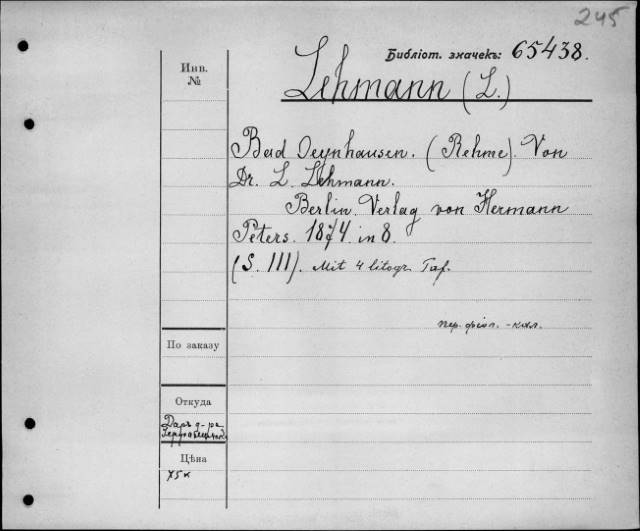 245
Библіот. значекъ: 65438.
Инв.
№
Lehmann (L.)
Bad Oeynhausen. (Rehme). Von
Dr. L. Lehmann.
Berlin. Verlag von Hermann
Peters. 1874. in 8.
(S. 111). Mit 4 litogr. Taf.
пер.
По заказу
Откуда
Даръ д-ра
Цѣна
75к